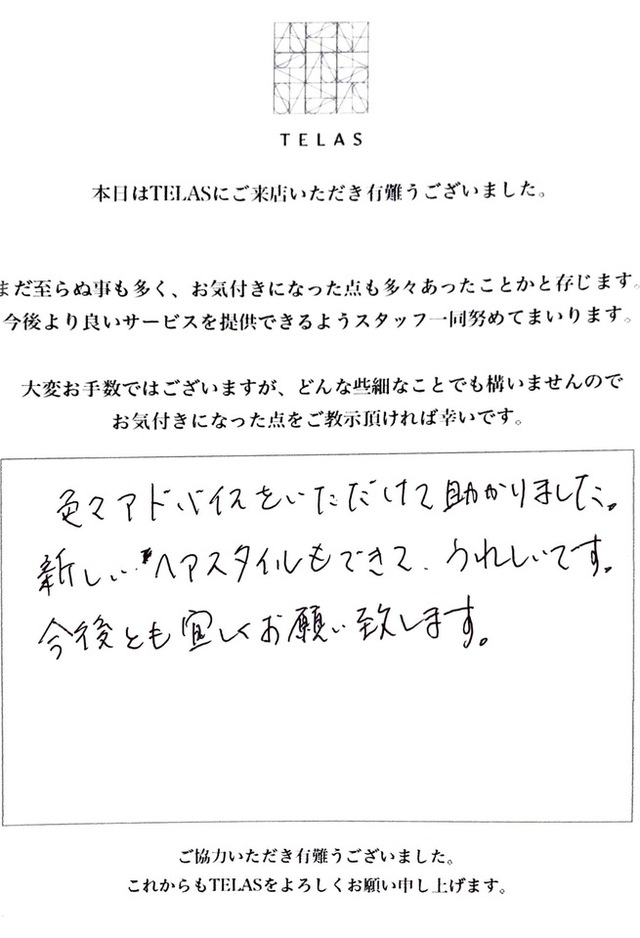 TELAS
本日はTELASにご来店いただき有難うございました。
まだ至らぬ事も多く、お気付きになった点も多々あったことかと存じます。
今後より良いサービスを提供できるようスタッフ一同努めてまいります。
大変お手数ではございますが、どんな些細なことでも構いませんので
お気付きになった点をご教示頂ければ幸いです。
色々アドバイスをいただけて助かりました。
新しいヘアスタイルもできて、うれしいです。
今後とも宜しくお願い致します。
ご協力いただき有難うございました。
これからもTELASをよろしくお願い申し上げます。